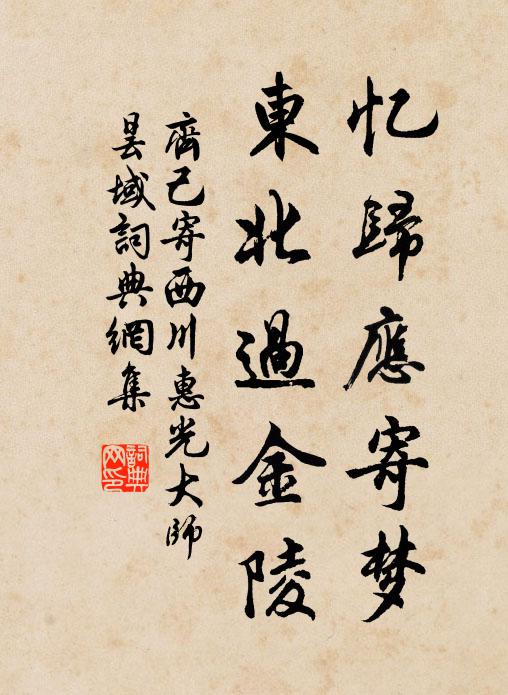 忆歸應寄梦
東北過金陵
齊己寄西川惠光大師
昙域詞典網集
詞典
网印